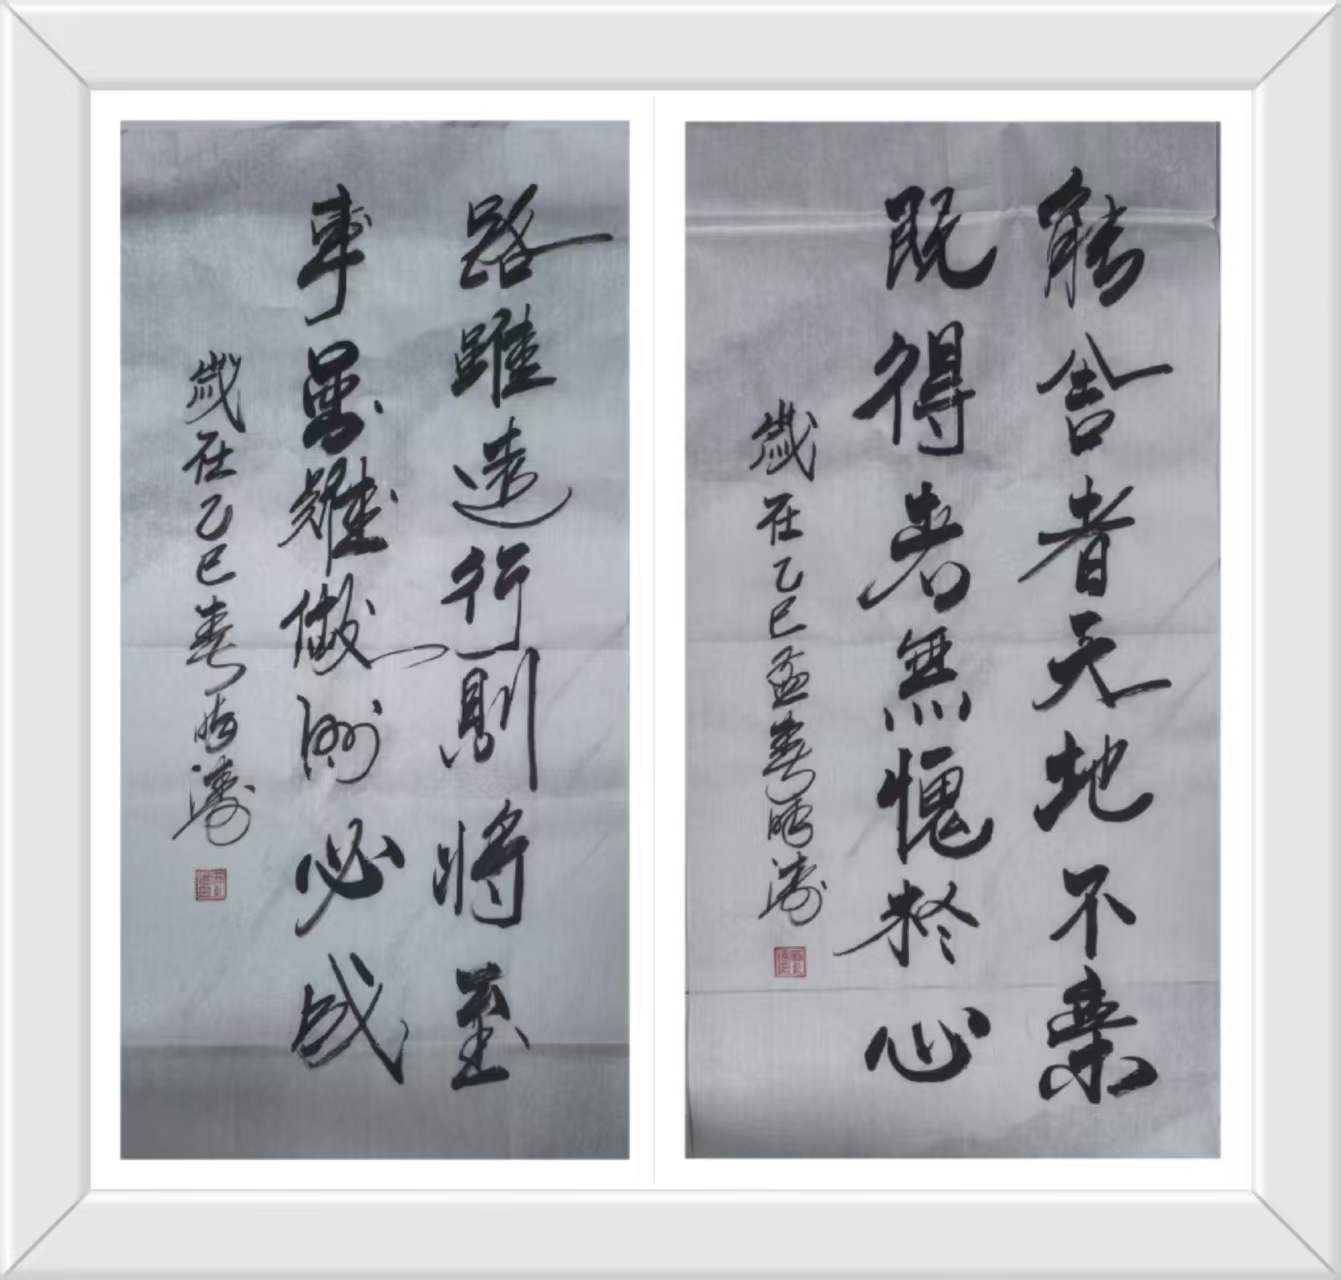 能舍者天地不棄
既得者無愧於心
歲在乙巳孟春
路雖遠行則將至
事虽難做則必成
歲在乙巳春